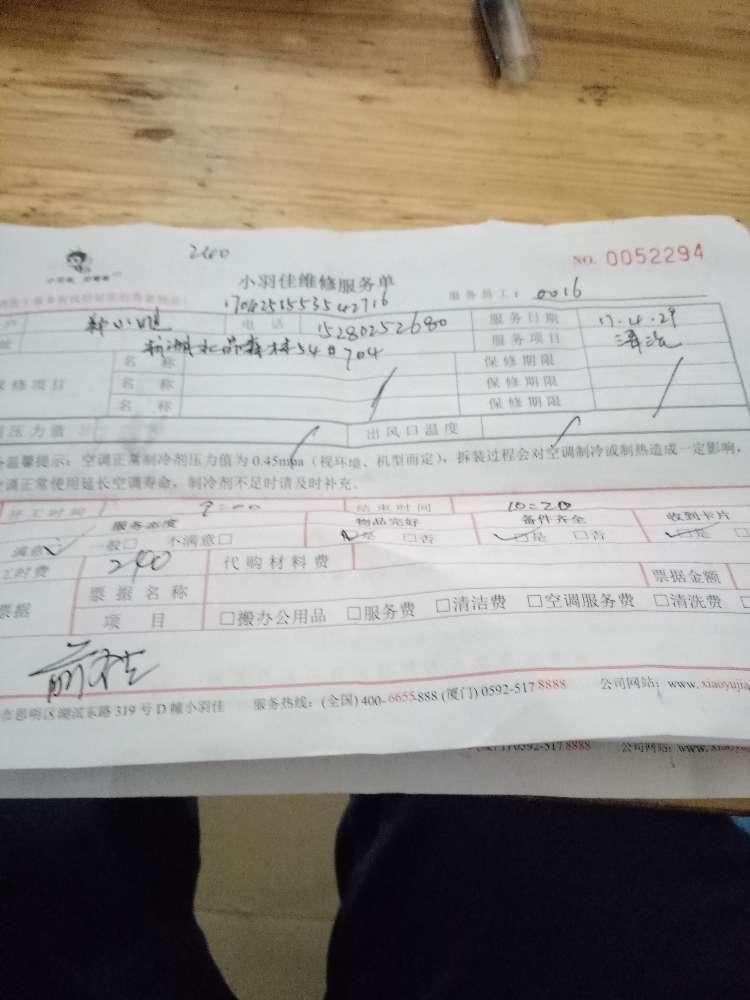 2400
NO. 0052294
小羽佳维修服务单
服务员工： 0016
1704251553542716
电话 15280252680 服务日期 17.4.29
54#704 服务项目 清洗
名称 保修期限
保修项目 名称 保修期限
名称 保修期限
压力值 出风口温度
温馨提示：空调正常制冷剂压力值为0.45mpa（视环境、机型而定），拆装过程会对空调制冷或制热造成一定影响，
调正常使用延长空调寿命，制冷剂不足时请及时补充。
开工时间 9=00 结束时间 10=20
服务态度 物品完好 备件齐全 收到卡片
满意 一般□ 不满意□ □是 □否 □是 □否 □是 □
工时费 240 代购材料费
票据 票据名称 票据金额
项目 □搬办公用品 □服务费 □清洁费 □空调服务费 □清洗费
思明区湖滨东路319号D幢小羽佳 服务热线：(全国)400-6655-888 (厦门)0592-5178888 公司网站：www.xiaoyujia
0592-5178888 公司网站：www.xiaoyu